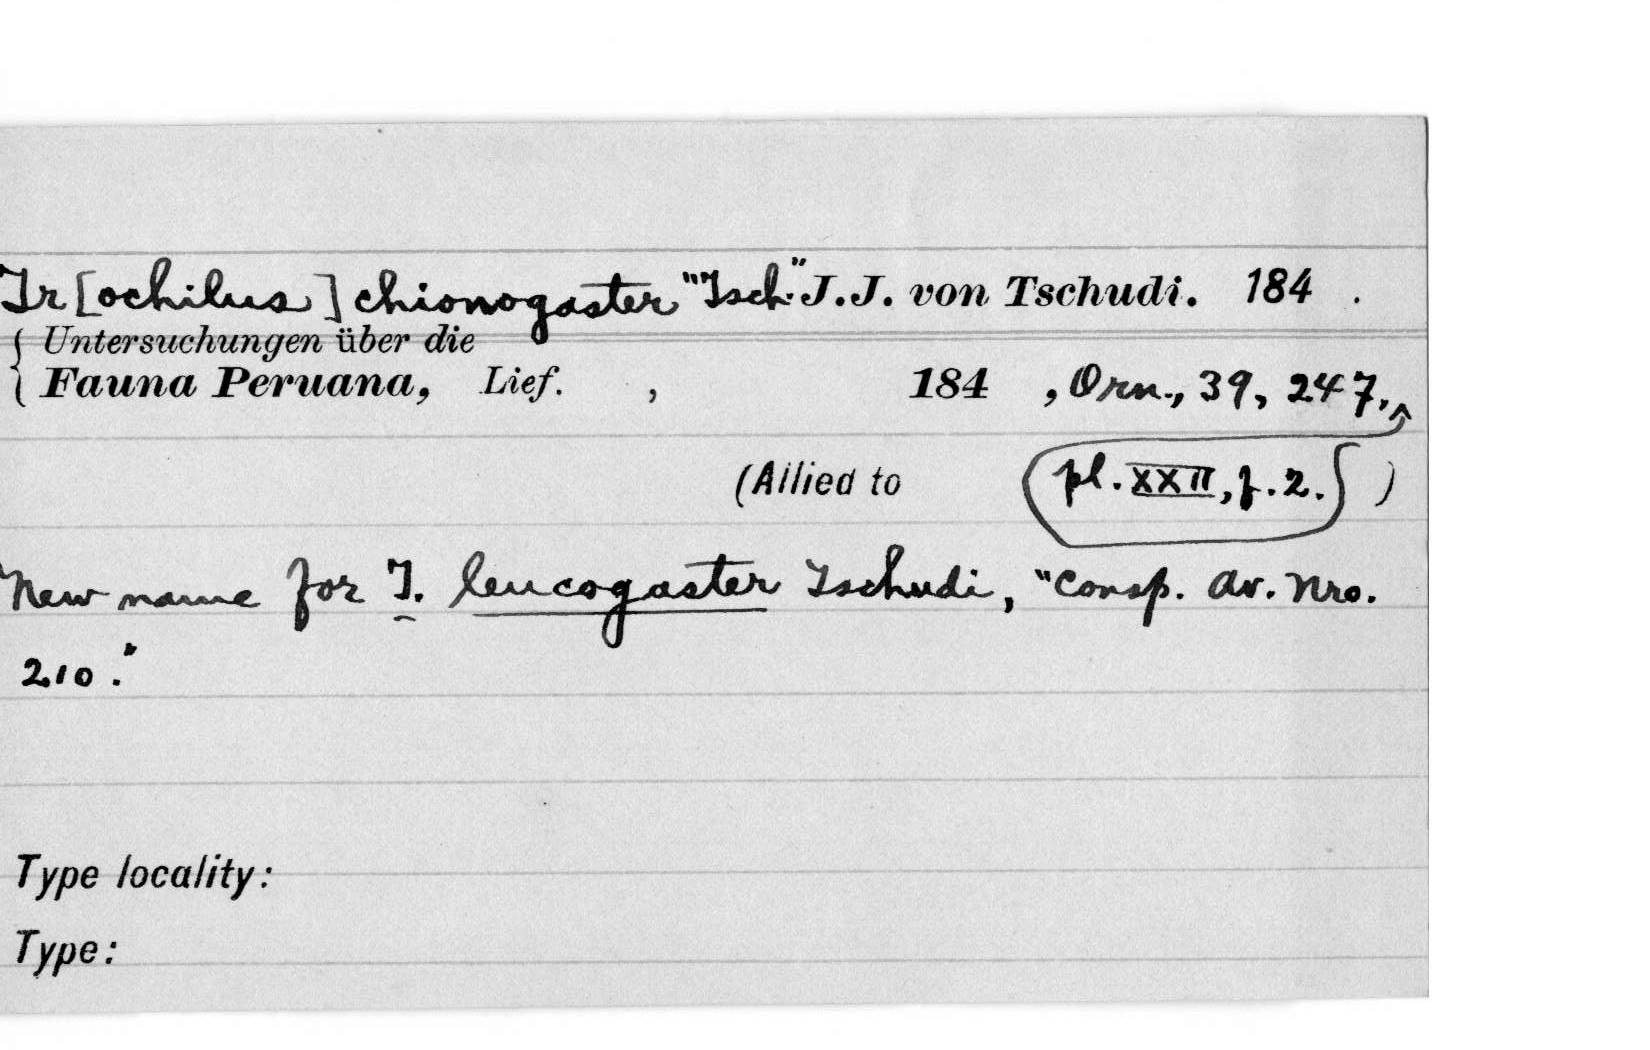 Tr[ochilus] chionogaster "Tsch." J. J. von Tschudi. 184 .
Untersuchungen über die
Fauna Peruana, Lief. , 184 , Orn., 39, 247,
(Allied to pl. XXII, f. 2. )
New name for T. leucogaster Tschudi, "Consp. Av. Nro.
210."
Type locality:
Type: